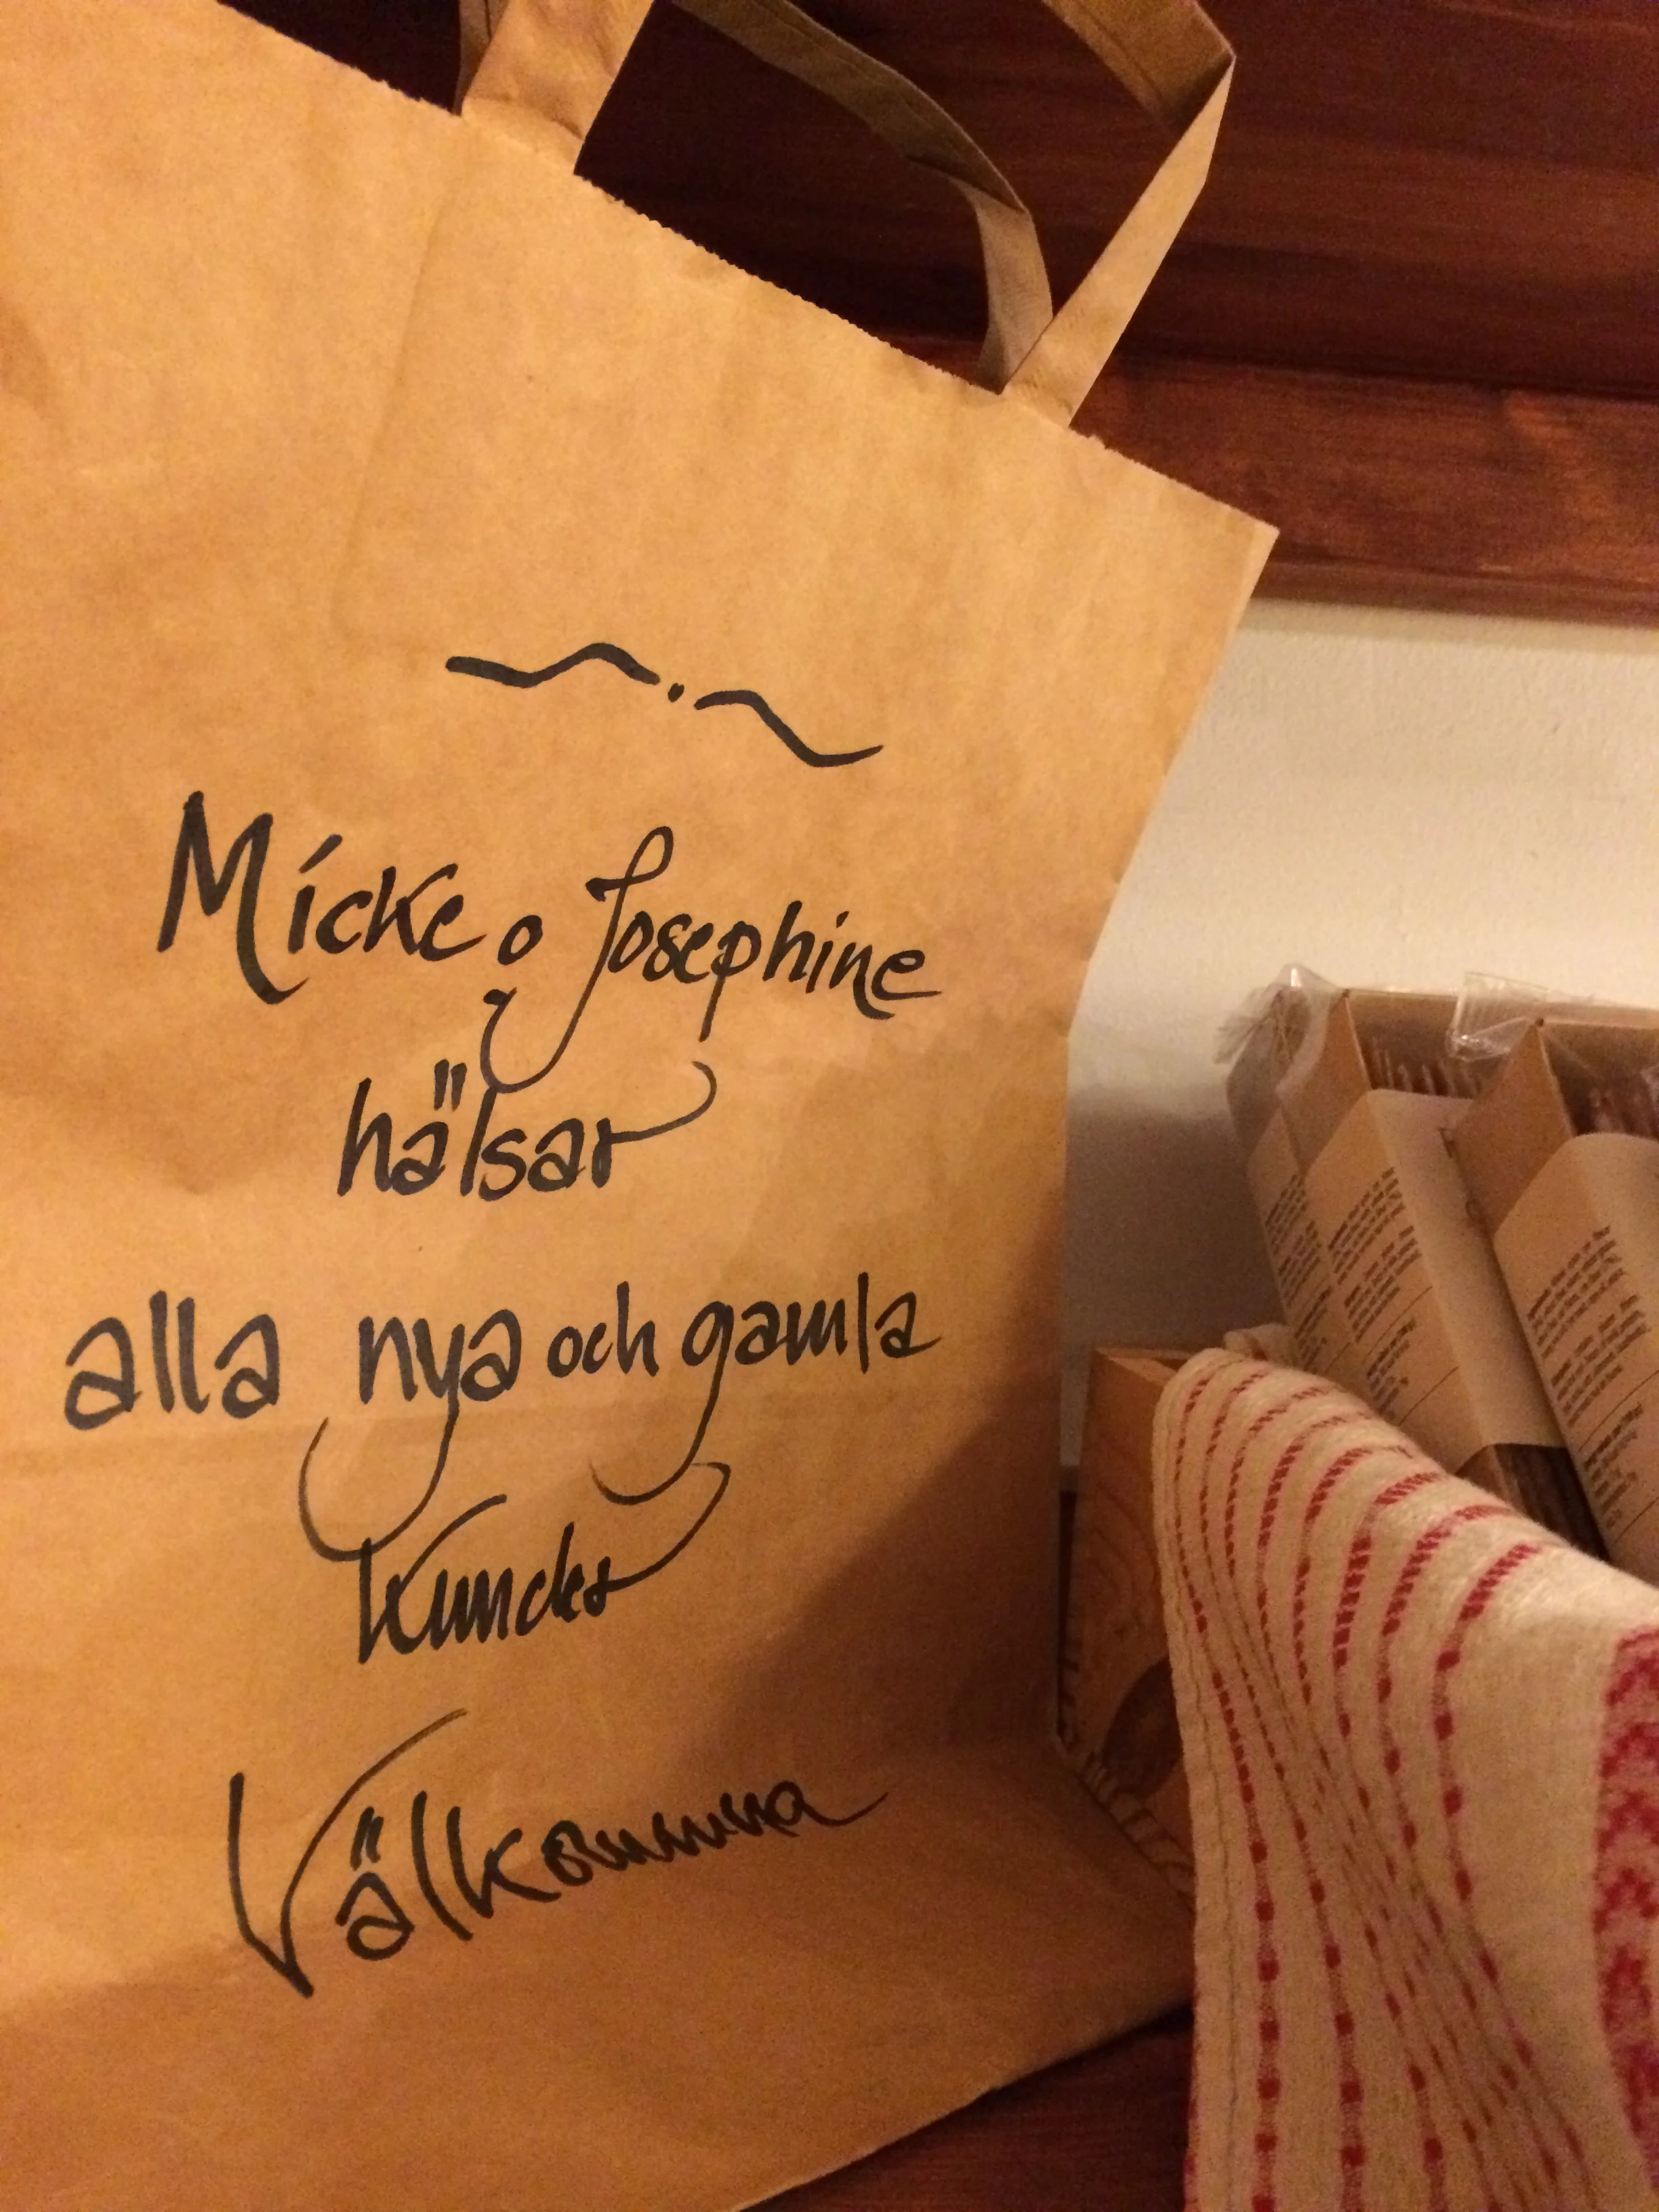 Micke o Josephine
hälsar
alla nya och gamla
Kunder
Välkomna